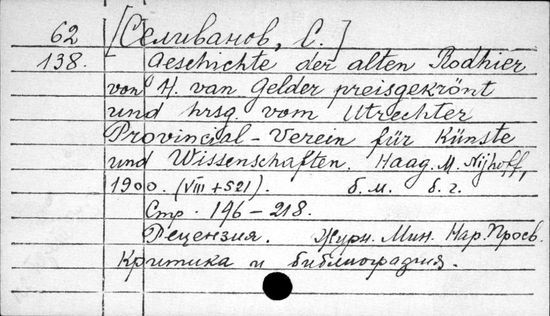 62 [Селиванов, С.]
138. Geschichte der alten Rodhier
von H. van Gelder preisgekrönt
und hrsg. vom Utrechter
Provincial-Verein für Künste
und Wissenschaften. Haag. M. Nijhoff,
1900. (VIII + 521). б. м. б. г.
Стр. 146-218.
Рецензия. Журн. Мин. Нар. Просв.
Критика и библиография.